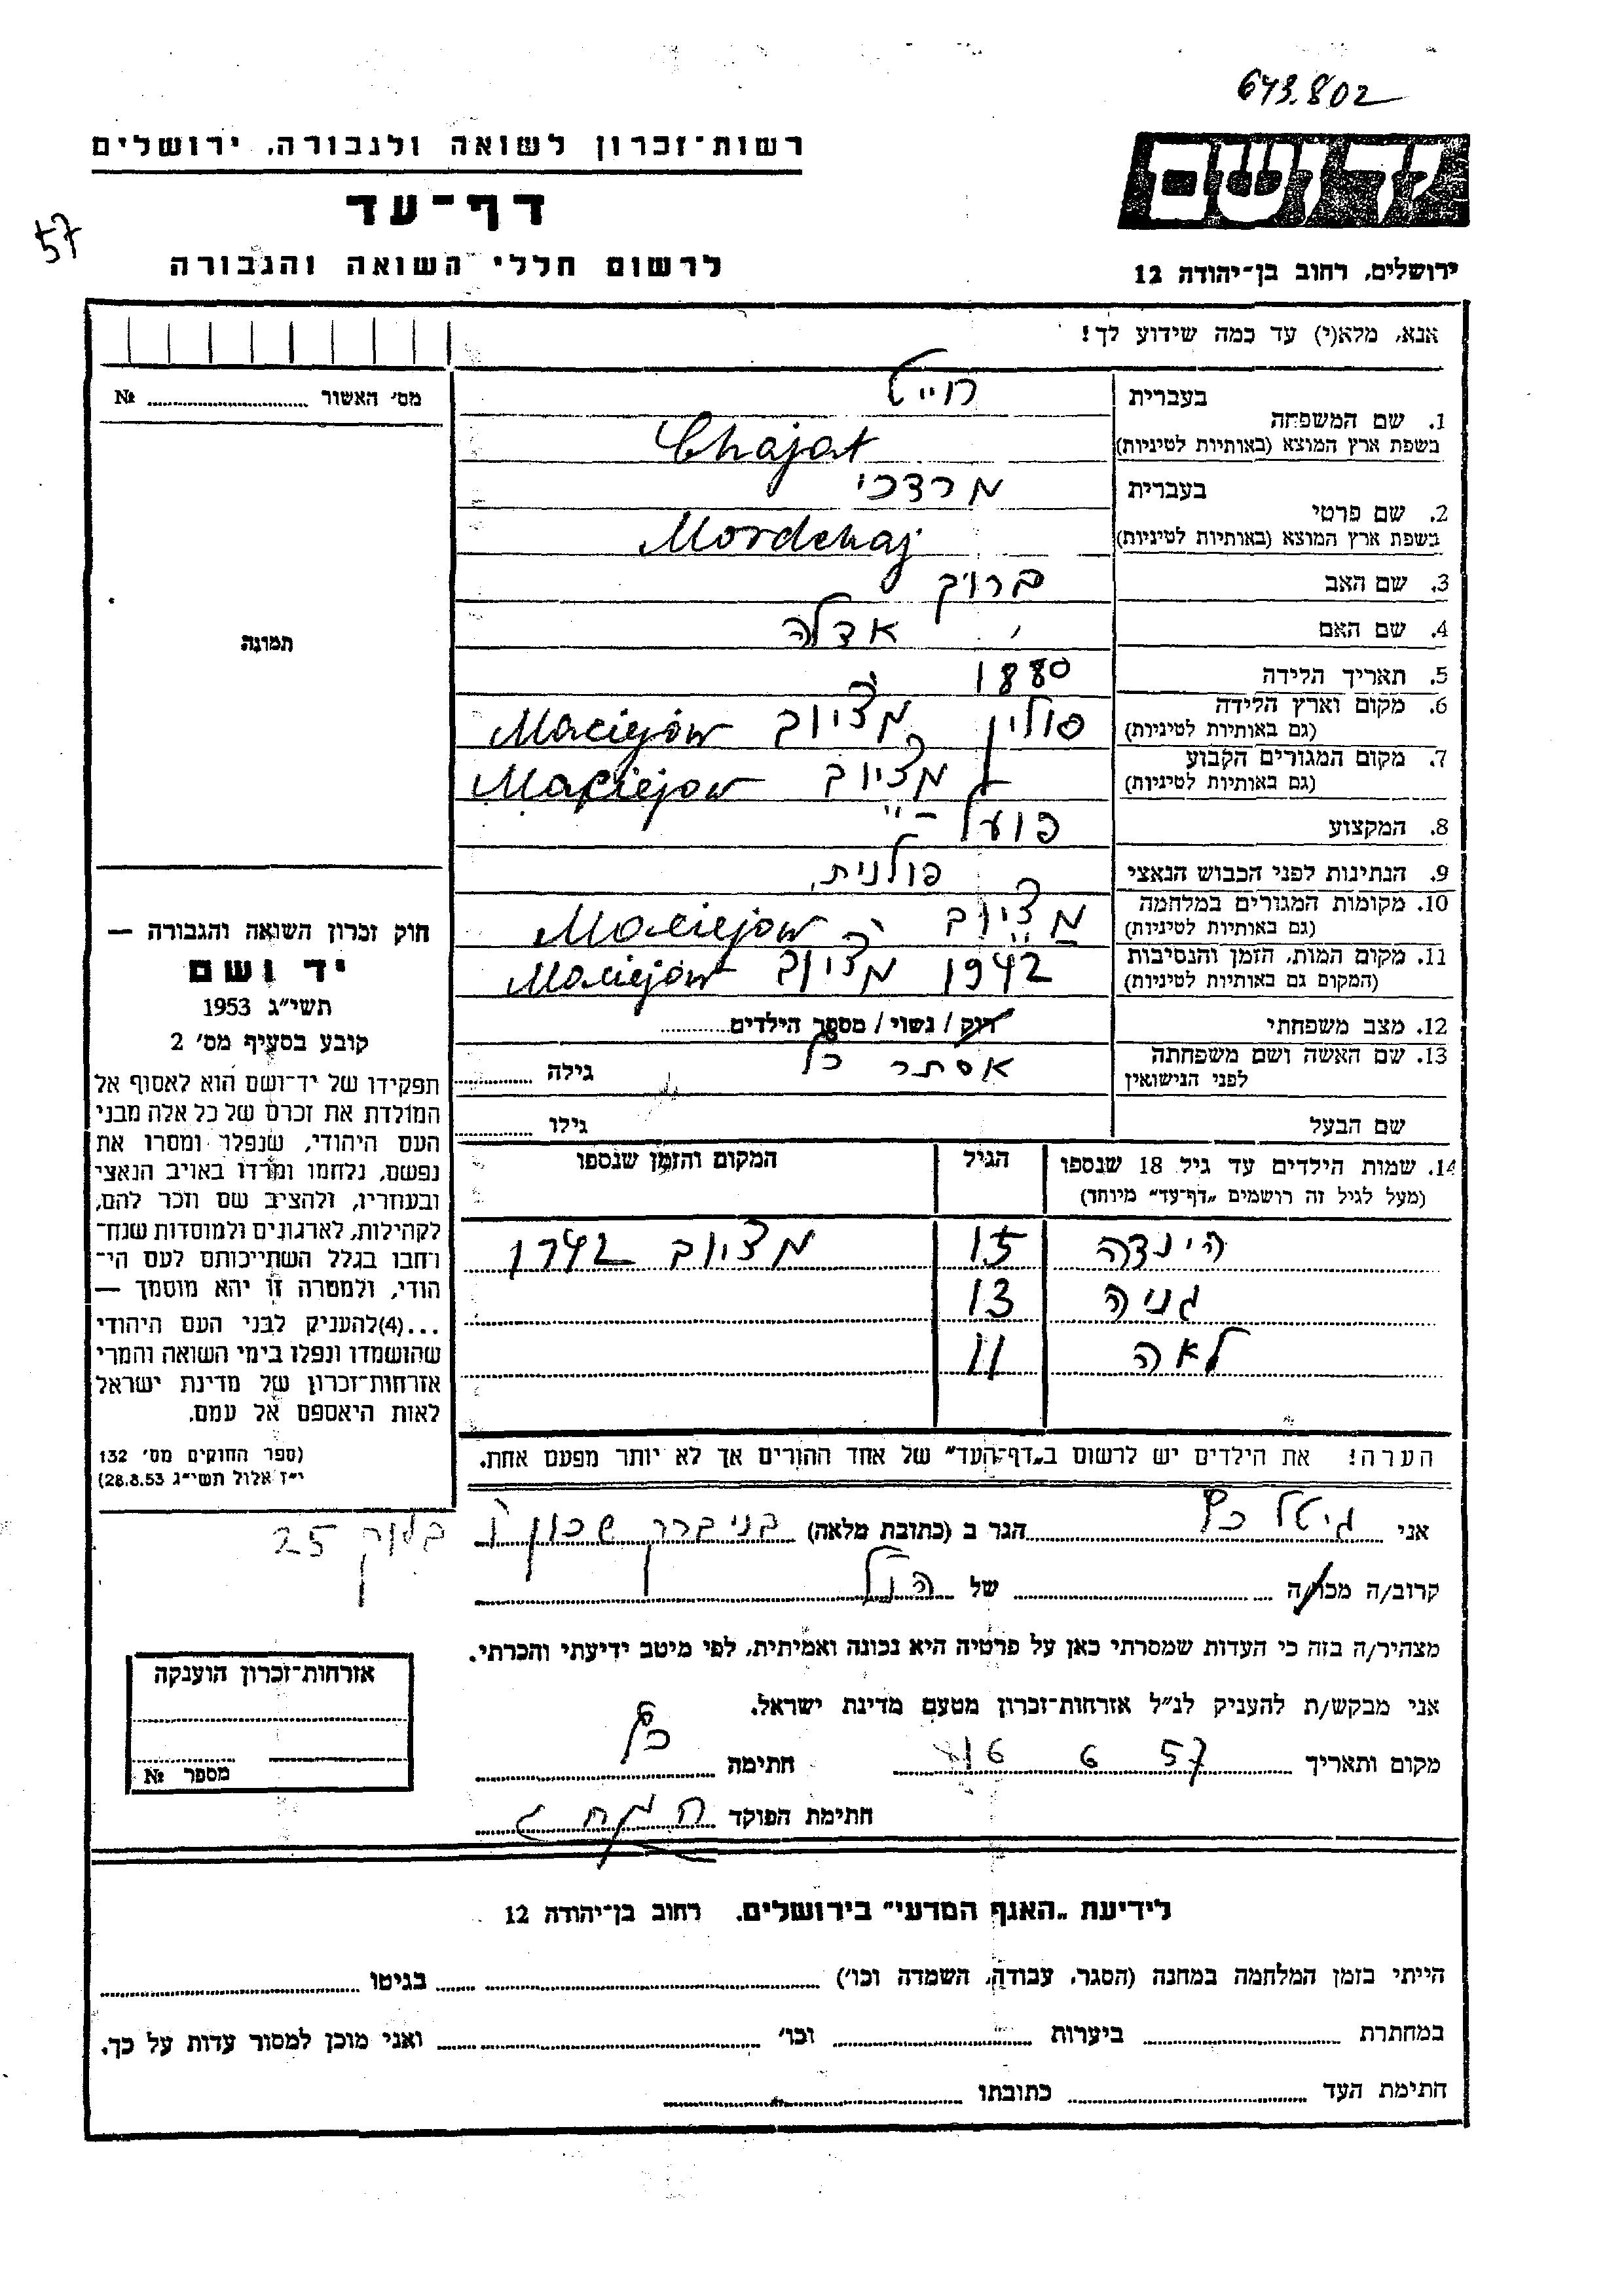 643.802
רשות-זכרון לשואה ולגבורה, ירושלים
יד ושם
דף-עד
57
לרשום חללי השואה והגבורה
ירושלים, רחוב בן-יהודה 12
אנא, מלא(י) עד כמה שידוע לך!
מס' האשור № ........
בעברית חייט
1. שם המשפחה
בשפת ארץ המוצא (באותיות לטיניות) Chajat
בעברית מרדכי
2. שם פרטי
בשפת ארץ המוצא (באותיות לטיניות) Mordchaj
3. שם האב ברוך
4. שם האם אדלה
תמונה
5. תאריך הלידה 1880
6. מקום וארץ הלידה פולין מציוב Maciejów
(גם באותיות לטיניות)
7. מקום המגורים הקבוע מציוב Maciejow
(גם באותיות לטיניות)
8. המקצוע פועל
9. הנתינות לפני הכבוש הנאצי פולנית
10. מקומות המגורים במלחמה מציוב Maciejow
(גם באותיות לטיניות)
11. מקום המות, הזמן והנסיבות 1942 מציוב Maciejów
(המקום גם באותיות לטיניות)
12. מצב משפחתי רוק / נשוי / מספר הילדים........
13. שם האשה ושם משפחתה אסתר כץ גילה ........
לפני הנישואין
שם הבעל גילו ........
14. שמות הילדים עד גיל 18 שנספו הגיל המקום והזמן שנספו
(מעל לגיל זה רושמים „דף-עד" מיוחד)
הינדה 15 מציוב 1942
גניה 13
לאה 11
הערה! את הילדים יש לרשום ב„דף-העד" של אחד ההורים אך לא יותר מפעם אחת.
חוק זכרון השואה והגבורה —
יד ושם
תשי"ג 1953
קובע בסעיף מס' 2
תפקידו של יד-ושם הוא לאסוף אל
המולדת את זכרם של כל אלה מבני
העם היהודי, שנפלו ומסרו את
נפשם, נלחמו ומרדו באויב הנאצי
ובעוזריו, ולהציב שם וזכר להם,
לקהילות, לארגונים ולמוסדות שנח-
רחבו בגלל השתייכותם לעם הי-
הודי, ולמטרה זו יהא מוסמך —
...(4)להעניק לבני העם היהודי
שהושמדו ונפלו בימי השואה והמרי
אזרחות-זכרון של מדינת ישראל
לאות היאספם אל עמם.
(ספר החוקים מס' 132
י"ז אלול תשי"ג 28.8.53)
אני גיטל כץ הגר ב (כתובת מלאה) בני ברק שכון ו בלוק 25
קרוב/ה מכר/ה ........ של הנ"ל
מצהיר/ה בזה כי העדות שמסרתי כאן על פרטיה היא נכונה ואמיתית, לפי מיטב ידיעתי והכרתי.
אני מבקש/ת להעניק לנ"ל אזרחות-זכרון מטעם מדינת ישראל.
מקום ותאריך 16 6 57 חתימה כץ
חתימת הפוקד
אזרחות-זכרון הוענקה
מספר №
לידיעת „האגף המדעי" בירושלים, רחוב בן-יהודה 12
הייתי בזמן המלחמה במחנה (הסגר, עבודה, השמדה וכו') ........ בגיטו ........
במחתרת ........ ביערות ........ וכו' ........ ואני מוכן למסור עדות על כך.
חתימת העד ........ כתובתו ........